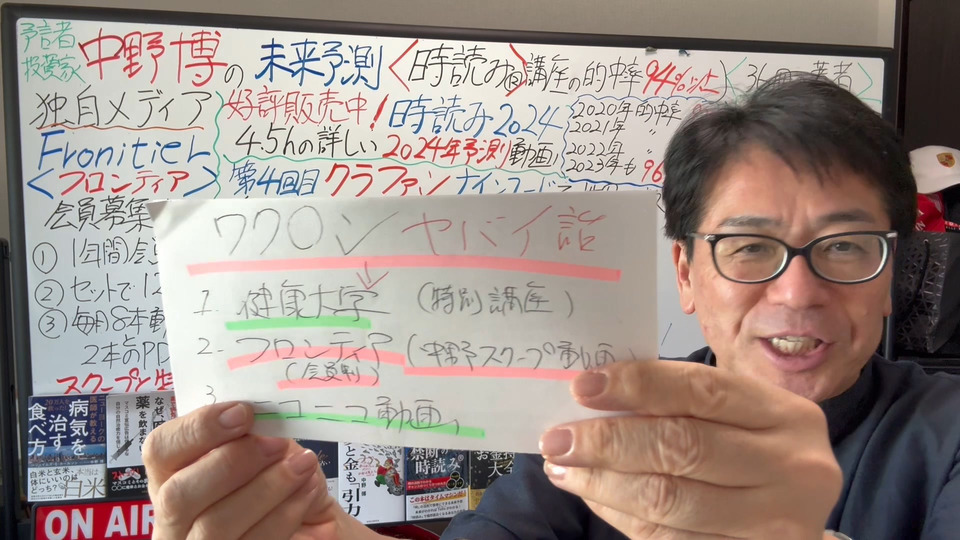 予言者
投資家
中野博の未来予測〈時読み〉講座の的中率94%以上〉〈36冊の著者
独自メディア
Fronitier
〈フロンティア〉
会員募集
① 1年間会
② セットで12
③ 毎月8本動
と
2本のPD
スクープと生
好評販売中!時読み2024
4.5hの詳しい2024年予測動画!
2020年的中率
2021年 〃
2022年 〃
2023年も96
第4回目クラファン
ワク〇ン ヤバイ話
1. 健康大学 (特別講座)
2. フロンティア (中野スクープ動画)
(会員制)
3. ニコニコ動画
病気を
治す
食べ方
白米と玄米、
体にいいのは
どっち?
なぜ、
薬を飲まな
と金も「引力
禁断の
時読み
お金持
大全
ON AIR